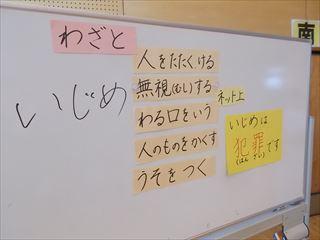 南
わざと
いじめ
人をたたくける
無視(むし)する
わる口をいう
人のものをかくす
うそをつく
ネット上
いじめは
犯罪です
(はんざい)